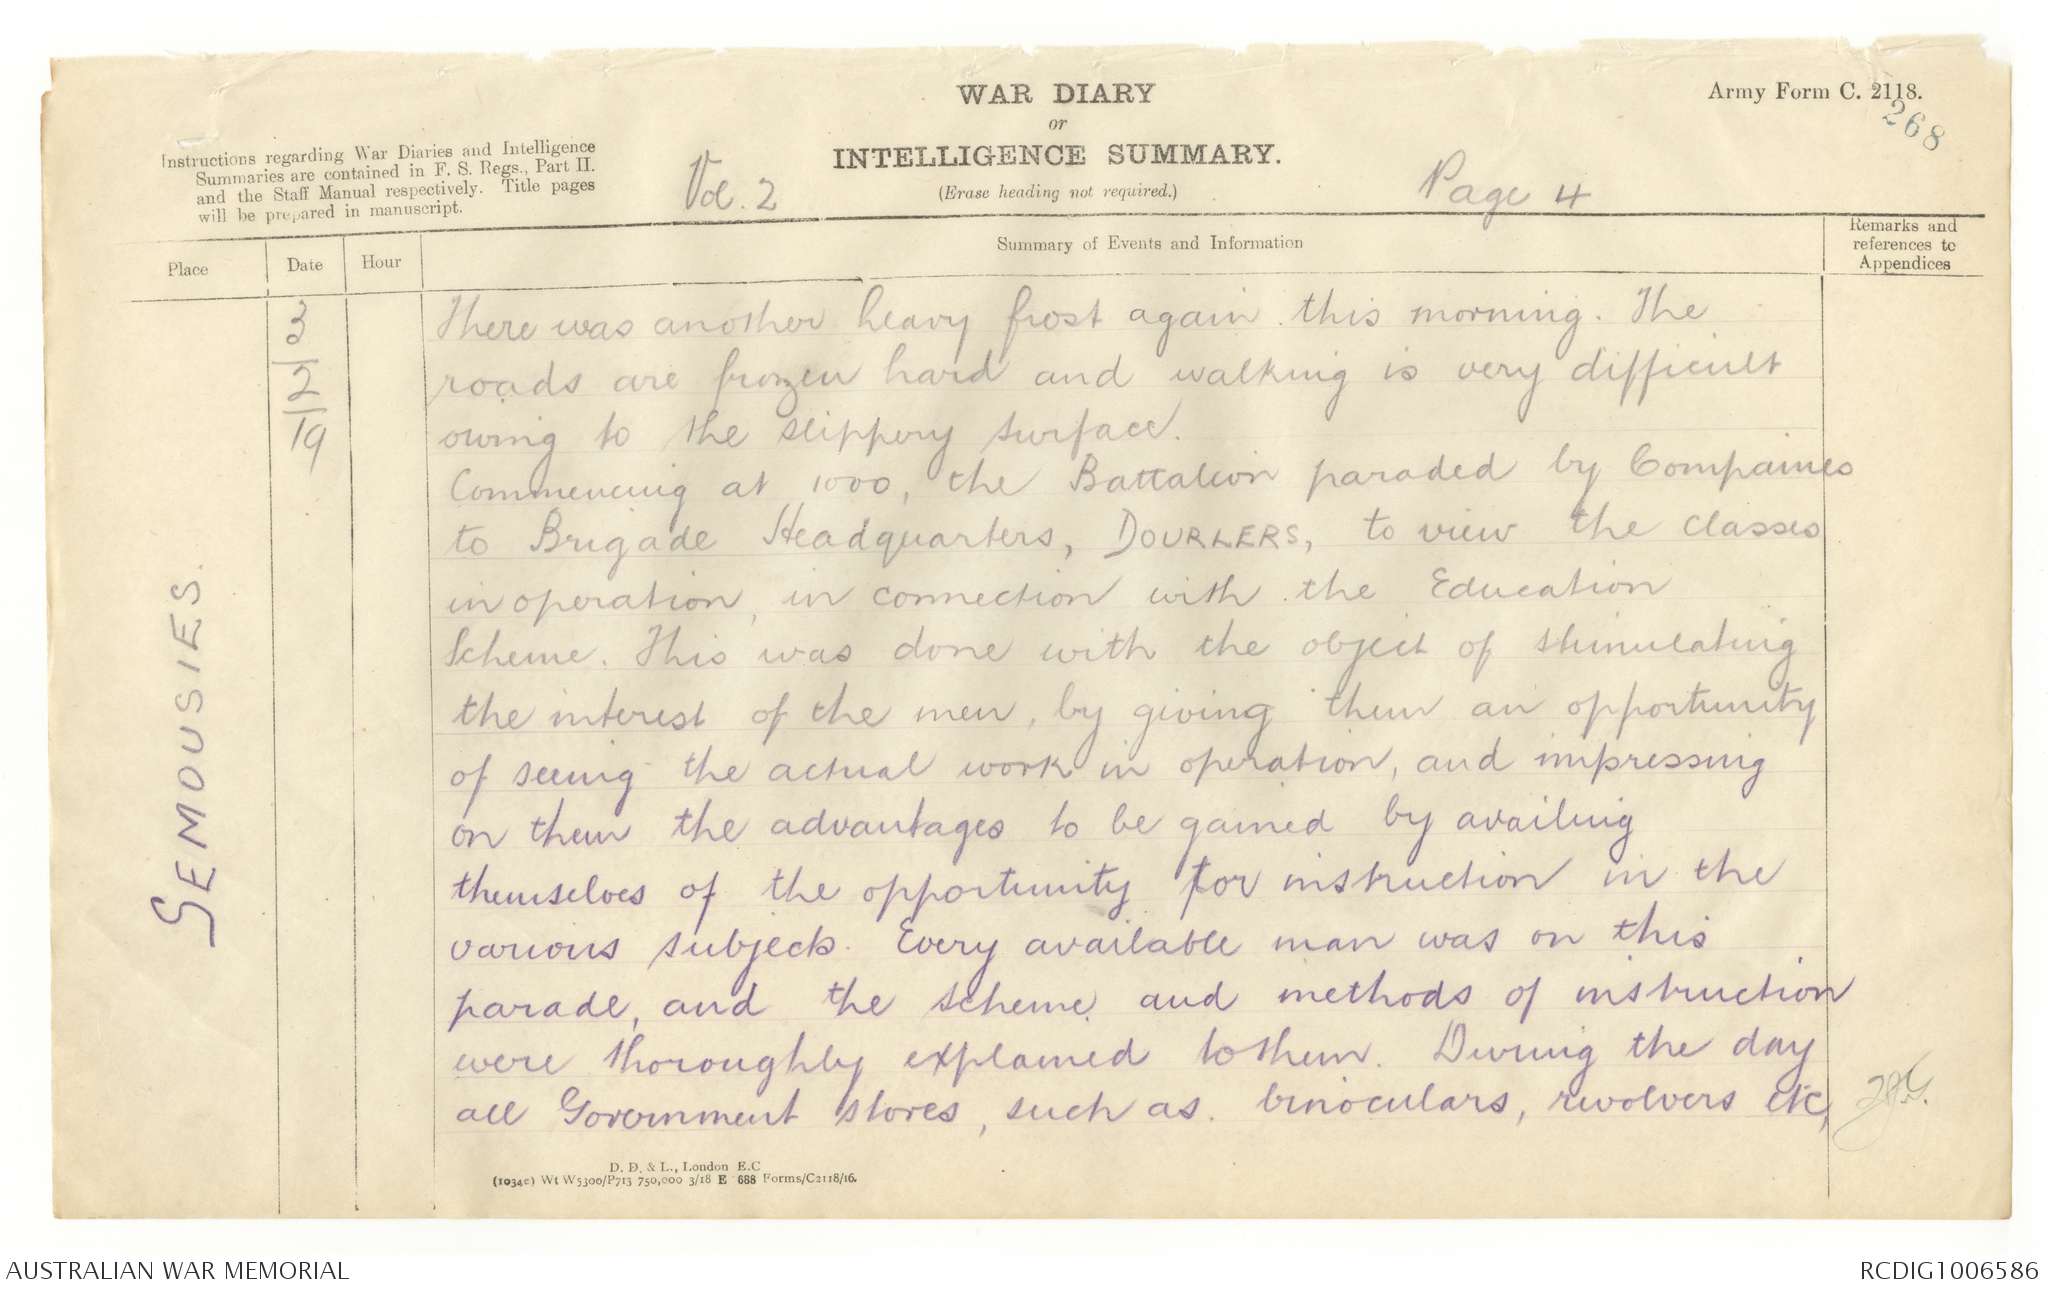 WAR DIARY
or
INTELLIGENCE SUMMARY.
(Erase heading not required.)
Army Form C. 2118.
268
Instructions regarding War Diaries and Intelligence
Summaries are contained in F. S. Regs., Part II.
and the Staff Manual respectively. Title pages
will be prepared in manuscript.
Vol. 2
Page 4
Place
Date
Hour
Summary of Events and Information
Remarks and
references to
Appendices
SEMOUSIES.
3
2
19
There was another heavy frost again this morning. The
roads are frozen hard and walking is very difficult
owing to the slippery surface.
Commencing at 1000, the Battalion paraded by Companies
to Brigade Headquarters, DOURLERS, to view the classes
in operation, in connection with the Education
Scheme. This was done with the object of stimulating
the interest of the men, by giving them an opportunity
of seeing the actual work in operation, and impressing
on them the advantages to be gained by availing
themselves of the opportunity for instruction in the
various subjects. Every available man was on this
parade, and the scheme and methods of instruction
were thoroughly explained to them. During the day
all Government stores, such as binoculars, revolvers etc,
D. D. & L., London E.C
(1034c) Wt W5300/P713 750,000 3/18 E 688 Forms/C2118/16.
AUSTRALIAN WAR MEMORIAL
RCDIG1006586